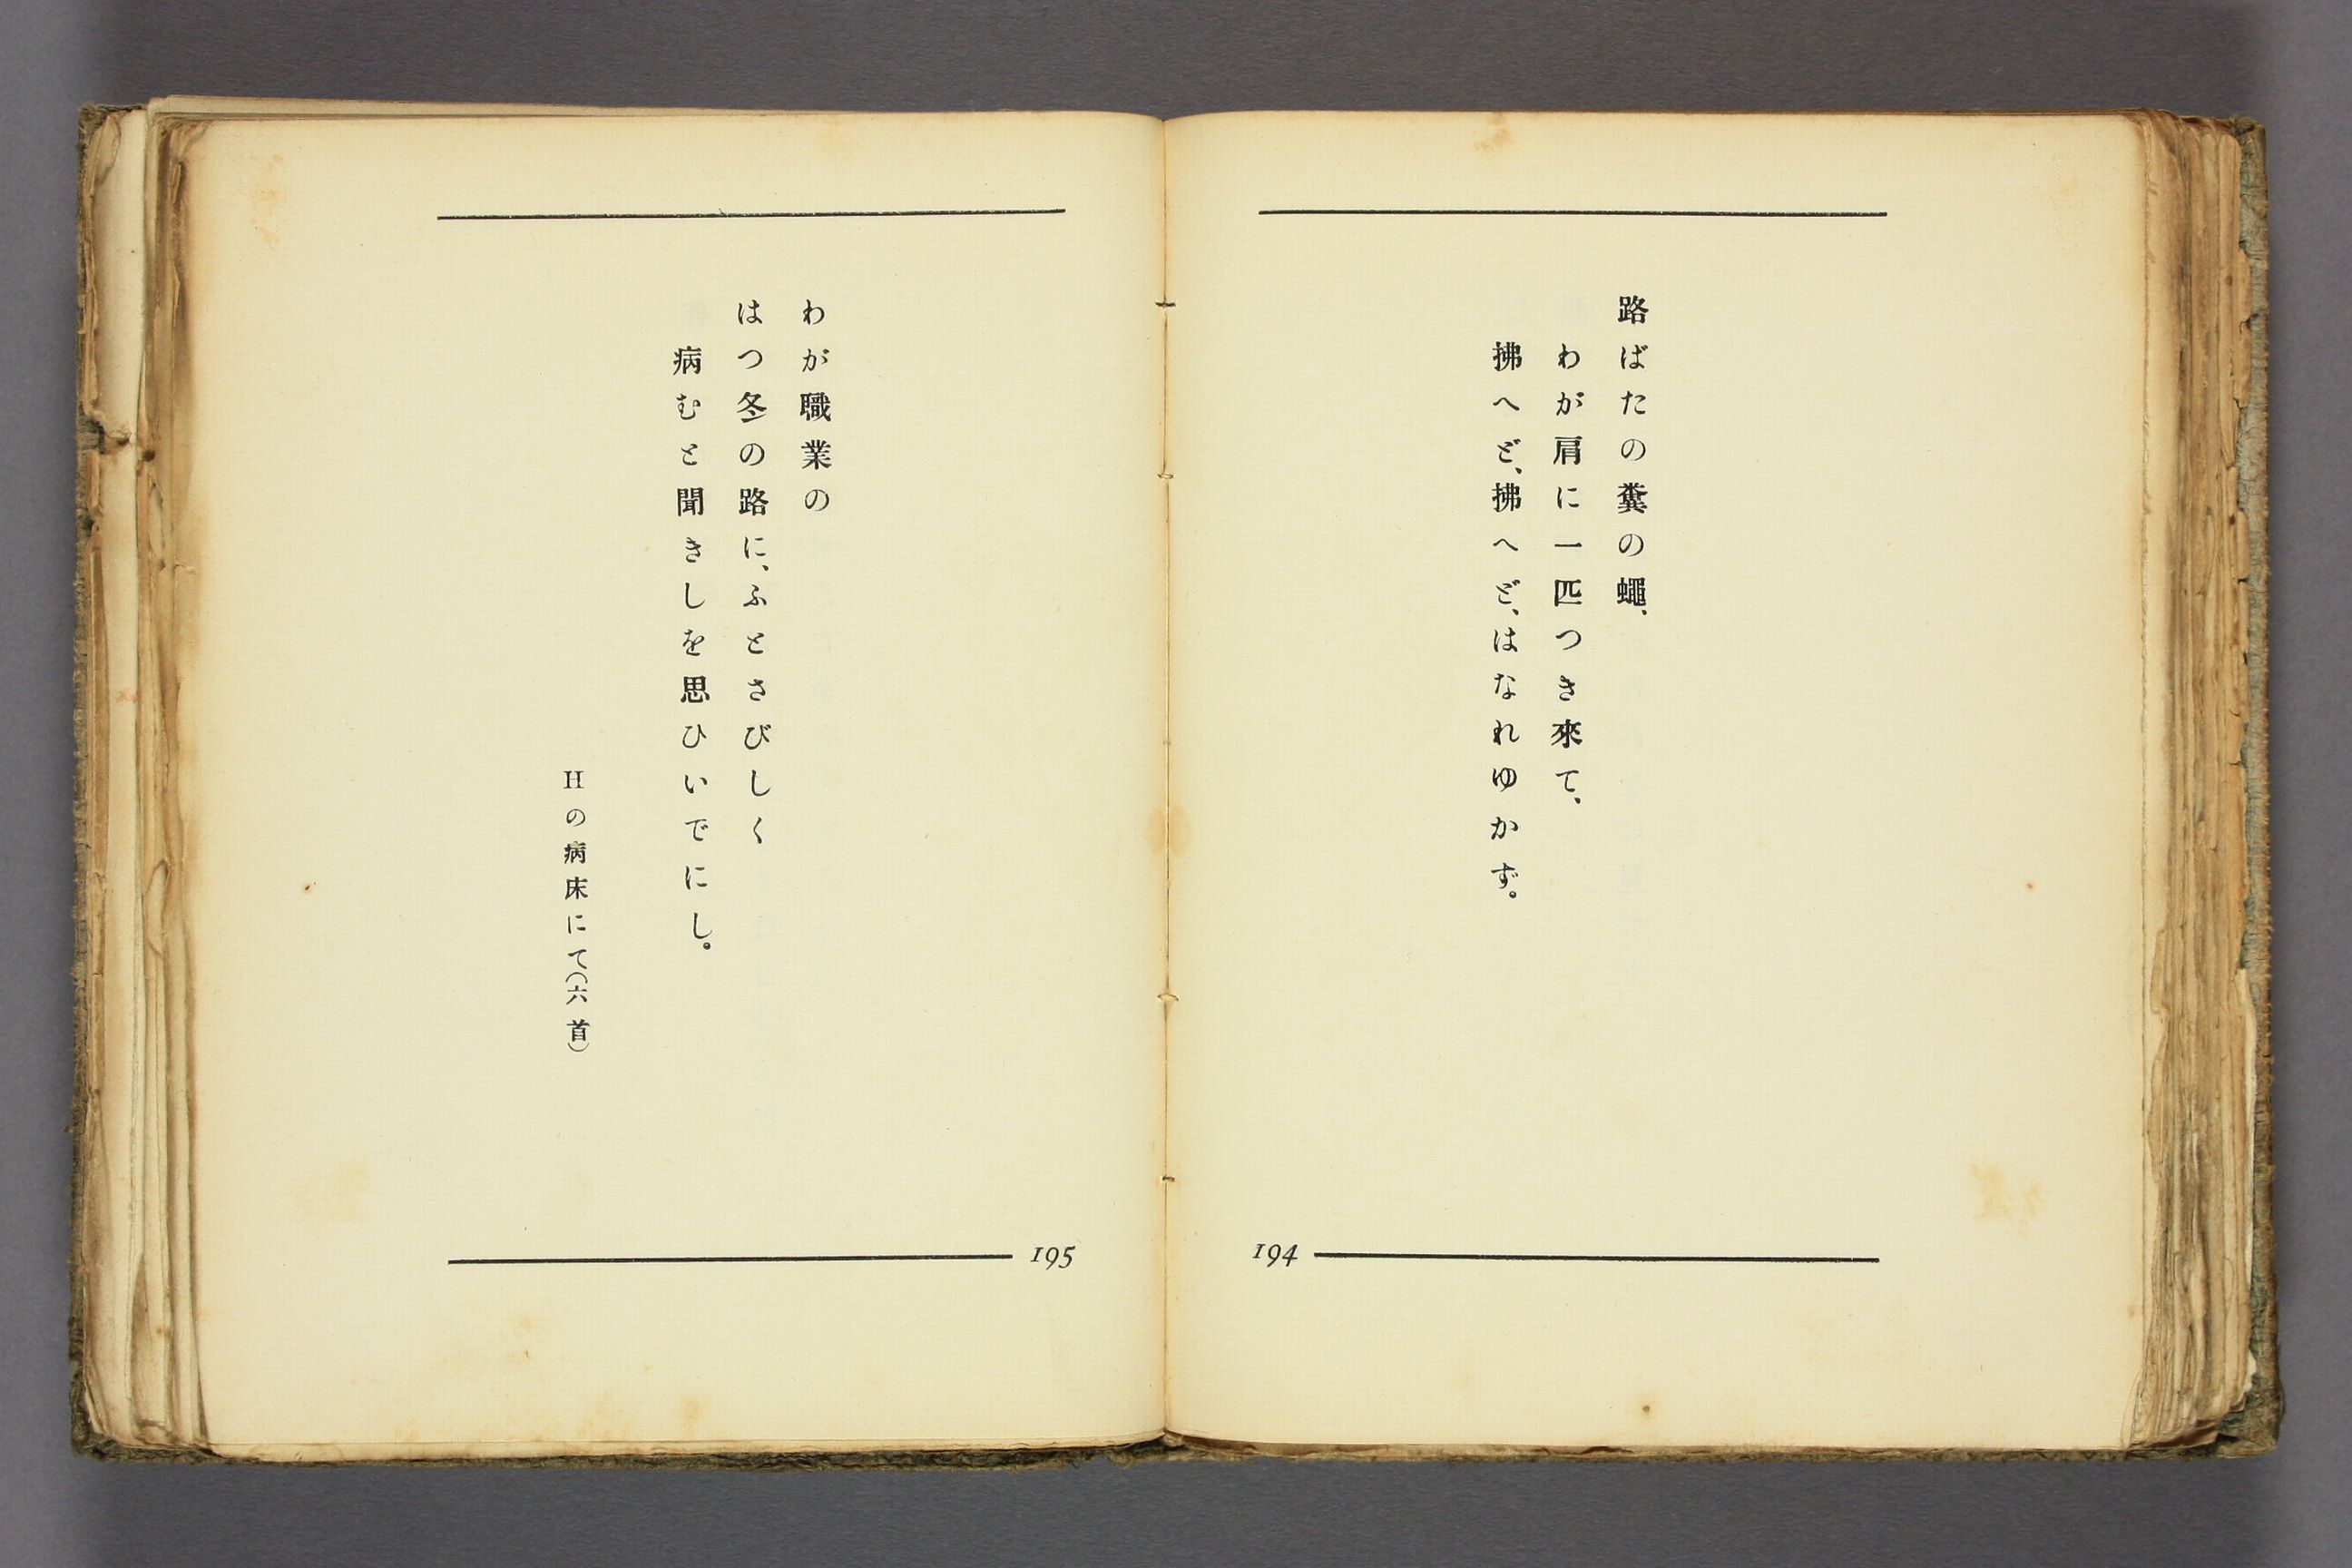 路ばたの糞の蠅、
わが肩に一匹つき來て、
拂へど、拂へど、はなれゆかず。
194
わが職業の
はつ冬の路に、ふとさびしく
病むと聞きしを思ひいでにし。
Hの病床にて(六首)
195